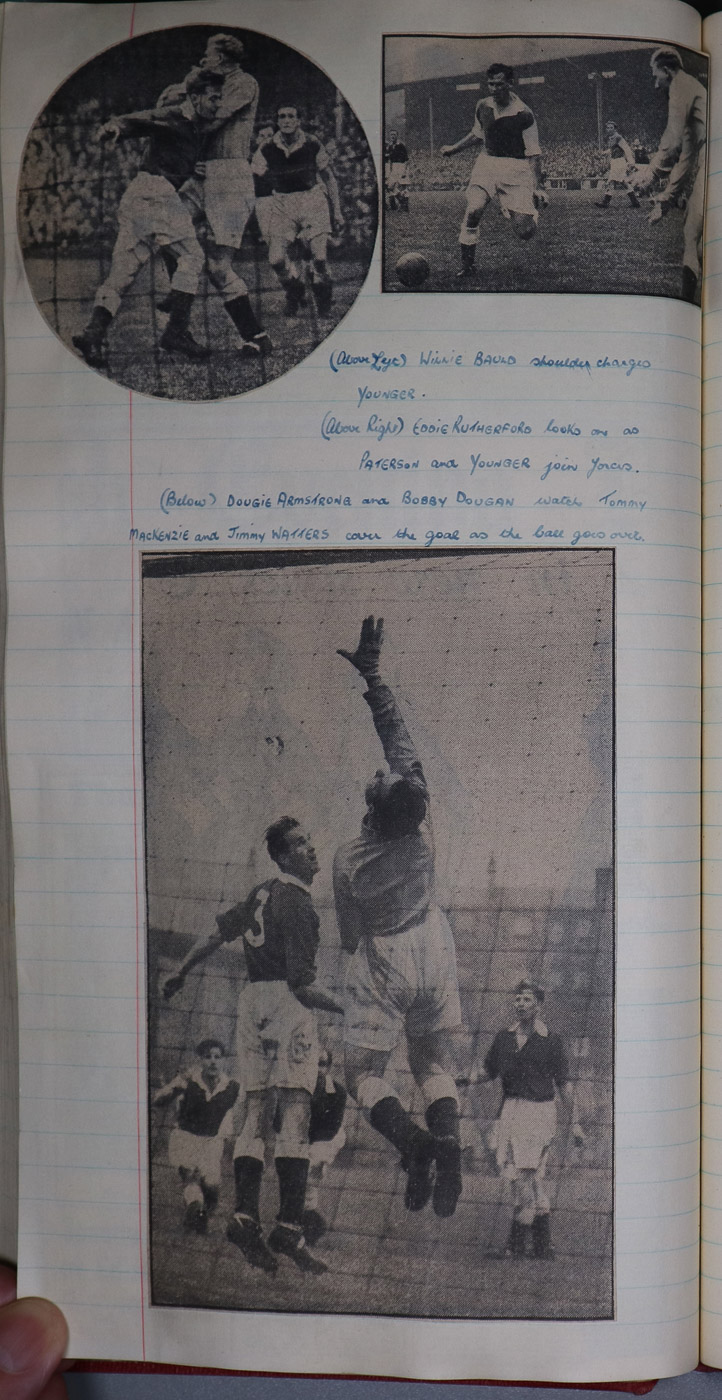 (Above Left) WILLIE BAULD shoulder charges
YOUNGER.
(Above Right) EDDIE RUTHERFORD looks on as
PATERSON and YOUNGER join forces.
(Below) DOUGIE ARMSTRONG and BOBBY DOUGAN watch Tommy
MACKENZIE and Jimmy WATTERS cover the goal as the ball goes over.
3